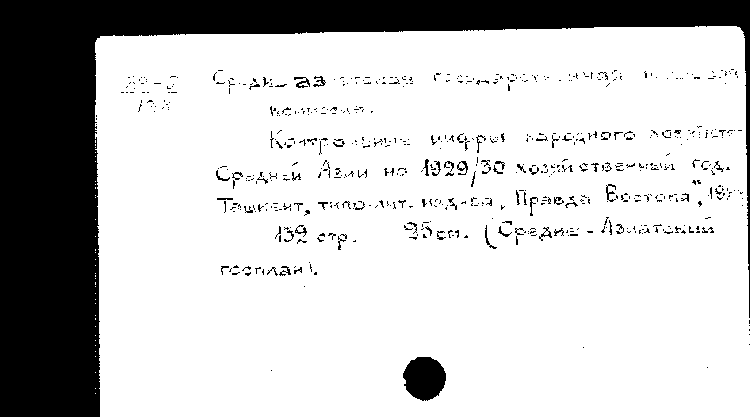 Средне-азиатская государственная плановая
комиссия.
Контрольные цифры народного хозяйства
Средней Азии на 1929/30 хозяйственный год.
Ташкент, типо-лит. изд-ва „Правда Востока",
132 стр. 25 см. (Средне-Азиатский
госплан).